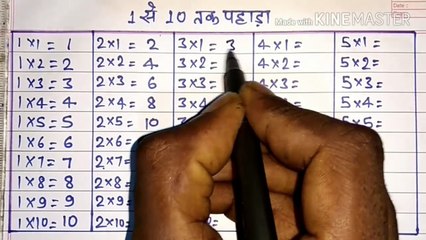 1 से 10 तक पहाड़ा
Made with KINEMASTER
1×1 = 1 2×1 = 2 3×1 = 3 4×1 = 5×1 =
1×2 = 2 2×2 = 4 3×2 = 4×2 = 5×2 =
1×3 = 3 2×3 = 6 3×3 = 4×3 = 5×3 =
1×4 = 4 2×4 = 8 3×4 5×4 =
1×5 = 5 2×5 = 10 5×5 =
1×6 = 6 2×6 =
1×7 = 7 2×7=
1×8 = 8 2×8
1×9 = 9 2×9
1×10 = 10 2×10=